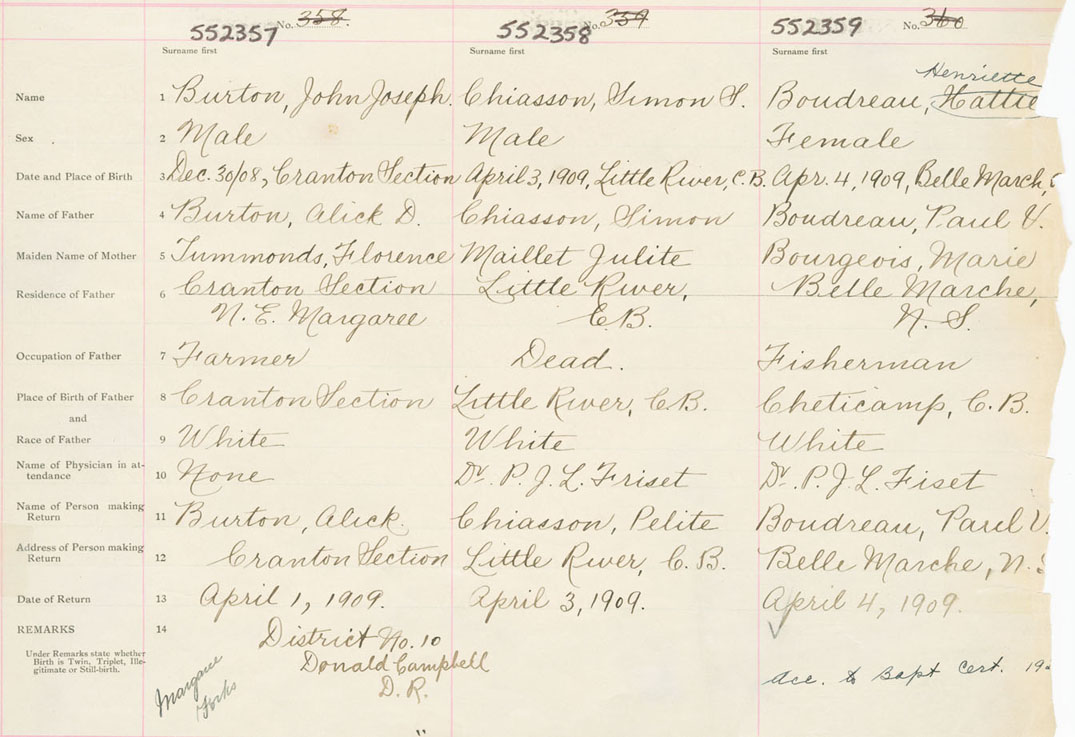 552357 No. 358. 552358 No. 359 552359 No. 360
Surname first Surname first Surname first
Henriette
Name 1 Burton, John Joseph. Chiasson, Simon S. Boudreau, Hattie
Sex 2 Male Male Female
Date and Place of Birth 3 Dec. 30/08, Cranton Section April 3, 1909, Little River, C.B. Apr. 4, 1909, Belle March,
Name of Father 4 Burton, Alick D. Chiasson, Simon Boudreau, Paul V.
Maiden Name of Mother 5 Tummonds, Florence Maillet Julite Bourgeois, Marie
Residence of Father 6 Cranton Section Little River, Belle Marche,
N. E. Margaree C.B. N. S.
Occupation of Father 7 Farmer Dead. Fisherman
Place of Birth of Father 8 Cranton Section Little River, C.B. Cheticamp, C. B.
and
Race of Father 9 White White White
Name of Physician in at-
tendance 10 None Dr. P. J. L. Friset Dr. P. J. L. Fiset
Name of Person making
Return 11 Burton, Alick. Chiasson, Pelite Boudreau, Paul V.
Address of Person making
Return 12 Cranton Section Little River, C. B. Belle Marche, N. S
Date of Return 13 April 1, 1909. April 3, 1909. April 4, 1909.
REMARKS 14 District No. 10
Under Remarks state whether
Birth is Twin, Triplet, Ille-
gitimate or Still-birth.
Donald Campbell
D. R.
Margaree
Forks
Acc. to Bapt Cert. 19